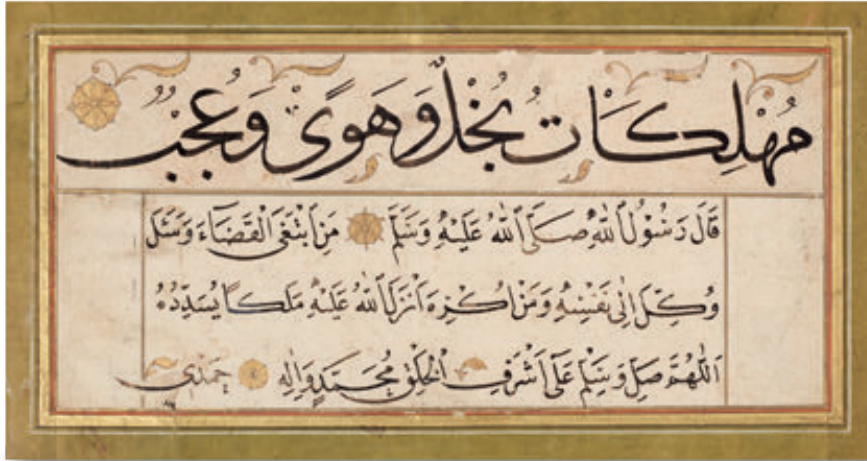 مُهْلِكَاتٌ بُخْلٌ وَهَوًى وَعُجْبٌ
قَالَ رَسُولُ اللّٰهِ صَلَّى اللّٰهُ عَلَيْهِ وَسَلَّمَ مَنِ ابْتَغَى الْقَضَاءَ وَسَئَلَ
وُكِّلَ اِلٰى نَفْسِهِ وَمَنْ اُكْرِهَ اَنْزَلَ اللّٰهُ عَلَيْهِ مَلَكًا يُسَدِّدُهُ
اَللّٰهُمَّ صَلِّ وَسَلِّمْ عَلٰى اَشْرَفِ الْخَلْقِ مُحَمَّدٍ وَاٰلِهِ حمدي